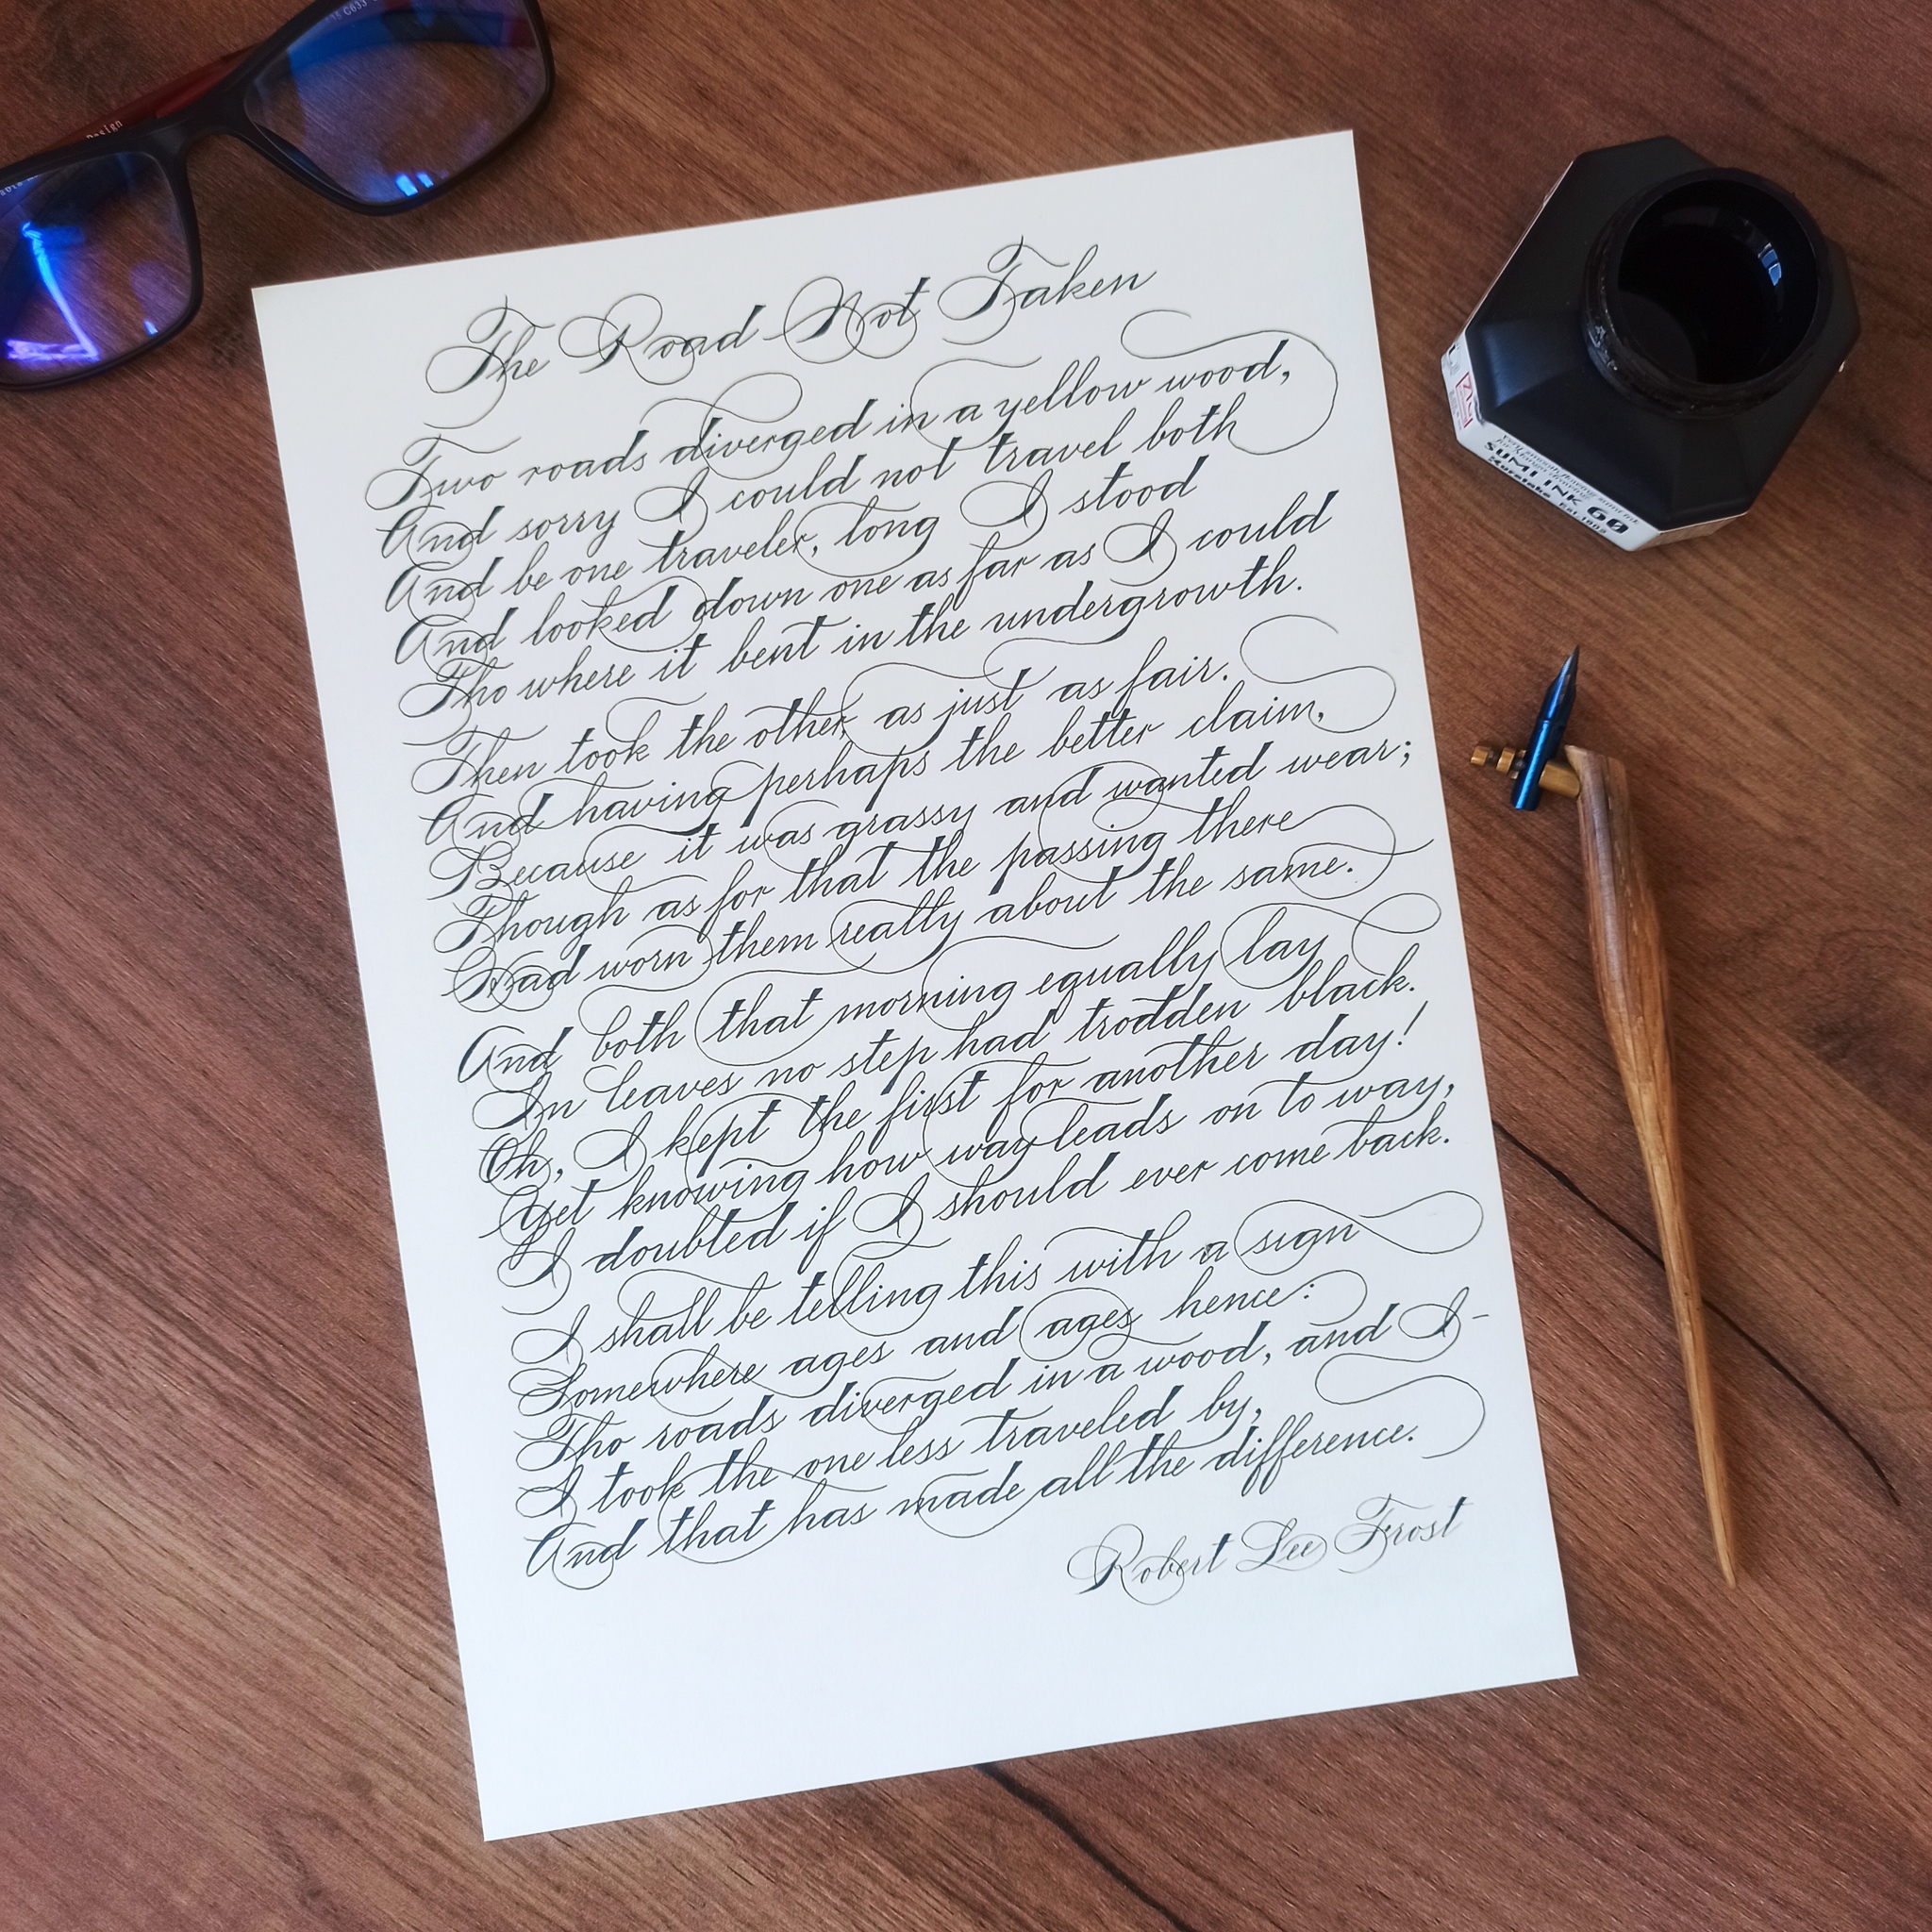 The Road Not Taken
Two roads diverged in a yellow wood,
And sorry I could not travel both
And be one traveler, long I stood
And looked down one as far as I could
Tho where it bent in the undergrowth.
Then took the other, as just as fair.
And having perhaps the better claim,
Because it was grassy and wanted wear;
Though as for that the passing there
Had worn them really about the same.
And both that morning equally lay
In leaves no step had trodden black.
Oh, I kept the first for another day!
Yet knowing how way leads on to way,
I doubted if I should ever come back.
I shall be telling this with a sign
Somewhere ages and ages hence:
Tho roads diverged in a wood, and I-
I took the one less traveled by,
And that has made all the difference.
Robert Lee Frost
SUMI INK 60
Kuretake Est.1902
Design